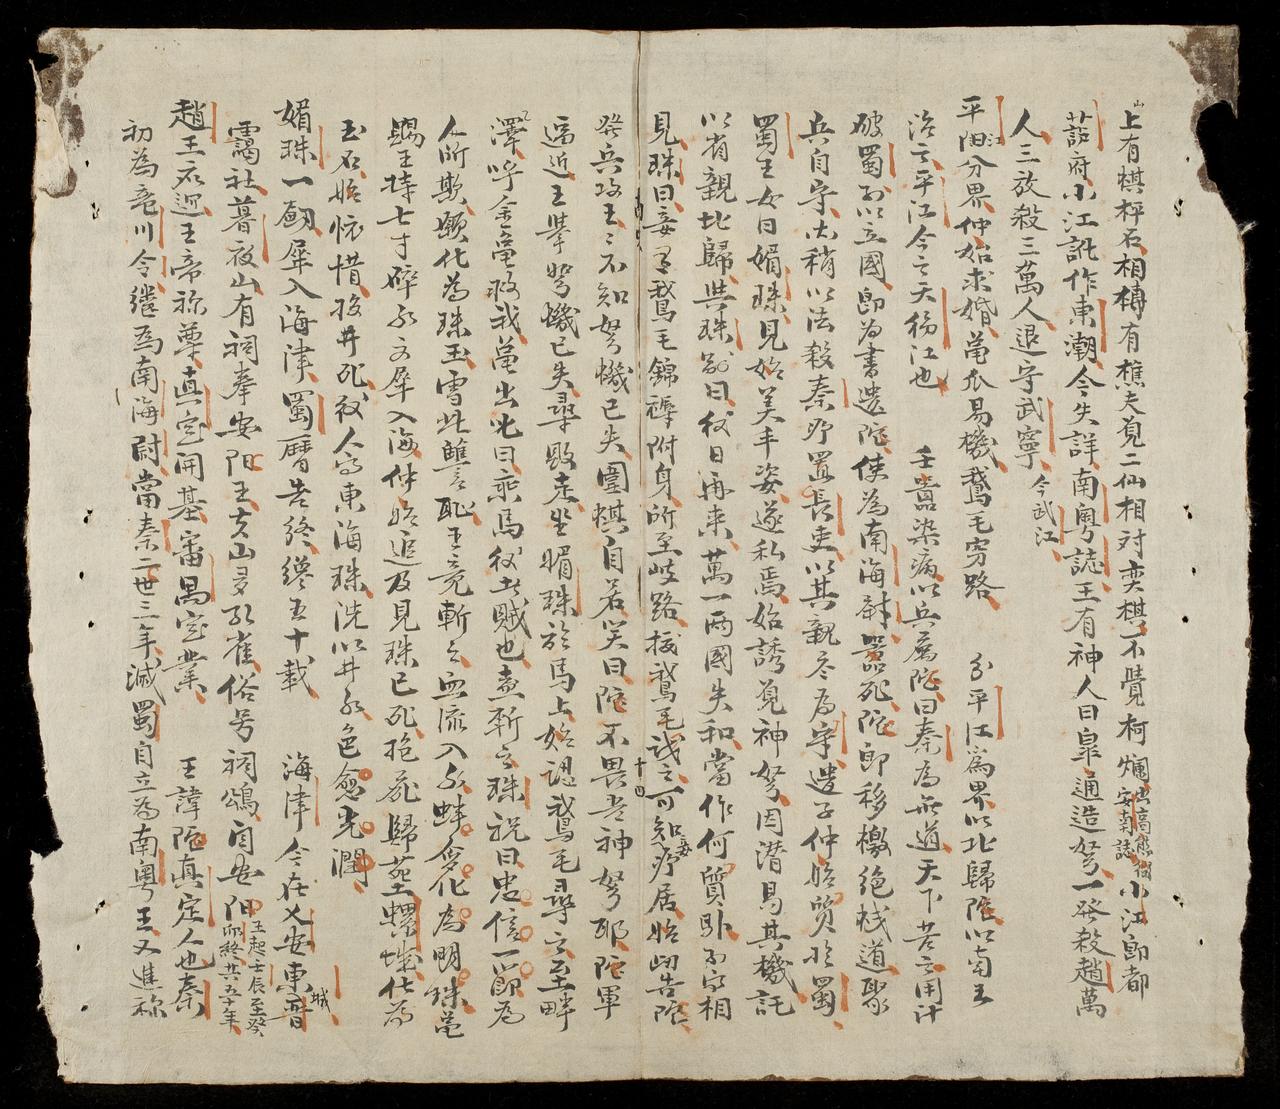 上有棋枰石相傳有樵夫覓二仙相対奕棋不覺柯爛出高熊徴安南誌小江即都
護府小江訛作東潮今失詳南粤誌王有神人曰臯通造弩一發殺趙萬
人三放殺三萬人退守武寧今武江
平江分界仲始求婚黽爪易機鵞毛穷路 分平江爲界以北歸陀以南王
治之平江今之天徳江也 壬囂染病以兵屬陀曰秦為無道天下苦之用計
破蜀可以立國即為書遣陀使為南海尉囂死陀即移檄絶栈道聚
兵自守出稍以法殺秦所置長吏以其親忝為守遣子仲始質於蜀
蜀王女曰媚珠見始美丰姿遂私焉始誘覓神弩因潜易其機託
以省親北歸與珠别曰彼日再来萬一兩國失和當作何質卧可守相
見珠曰妾有鵞毛錦褥附身所至岐路拔鵞毛識之可知妾所居始囬告陀
發兵攻王王不知弩機已失圍棋自若笑曰陀不畏吾神弩耶陀軍
逼近王擧弩機已失尋敗走坐媚珠於馬上始認鵞毛尋之至畔
澤呼金黽救我黽出叱曰乘馬後者賊也意斬之珠祝曰忠信一節為
人所欺願化為珠玉雪此讐耻王竟斬之血流入水蚌含化為明珠黽
賜王持七寸碎水文犀入海仲始追及見珠已死抱屍歸葬螺城化為
玉石始懷惜投井死後人得東海珠洗以井水色愈光潤
媚珠一劎犀入海津蜀曆告終纔五十載 海津今在乂安東城晋
靄社暮夜山有祠奉安阳王夫山多孔雀俗号祠鴿自安阳王起壬辰至癸邜終共五十年
趙王名逈王帝称尊真定開基審禺定業 王諱陀真定人也秦
初為竜川令继為南海尉當秦二世三年滅蜀自立為南粤王又進称